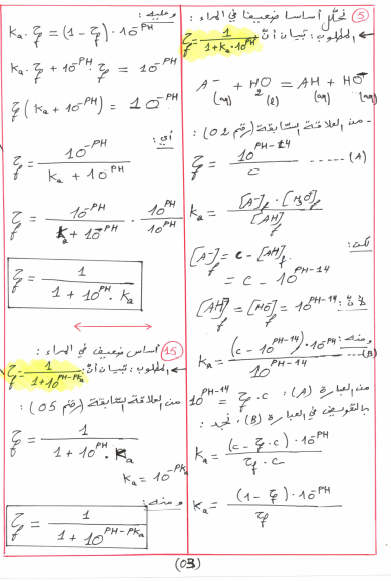 (5) نحلل أساسا ضعيفا في الماء :
← المطلوب: تبيان أن τf = 1 / (1 + ka·10^PH)
A⁻(aq) + H₂O(l) = AH(aq) + HO⁻(aq)
- من العلاقة السابقة (رقم 02) :
τf = 10^(PH-14) / c ------ (A)
ka = [A⁻]f · [H₃O⁺]f / [AH]f
لكن:
[A⁻]f = c - [AH]f
= c - 10^(PH-14)
[AH]f = [HO⁻]f = 10^(PH-14)
ومنه:
ka = (c - 10^(PH-14)) · 10^(-PH) / 10^(PH-14) ---(B)
من العبارة (A) : 10^(PH-14) = τf · c
بالتعويض في العبارة (B)، نجد :
ka = (c - τf · c) · 10^(-PH) / (τf · c)
ka = (1 - τf) · 10^(-PH) / τf
وعليه :
ka · τf = (1 - τf) · 10^(-PH)
ka · τf + 10^(-PH) · τf = 10^(-PH)
τf (ka + 10^(-PH)) = 10^(-PH)
أي :
τf = 10^(-PH) / (ka + 10^(-PH))
τf = 10^(-PH) / (ka + 10^(-PH)) · 10^PH / 10^PH
τf = 1 / (1 + 10^PH · ka)
(15) أساس ضعيف في الماء :
← المطلوب: تبيان أن: τf = 1 / (1 + 10^(PH-PKa))
من العلاقة السابقة (رقم 05) :
τf = 1 / (1 + 10^PH · ka)
ka = 10^(-PKa)
ومنه :
τf = 1 / (1 + 10^(PH-PKa))
(03)